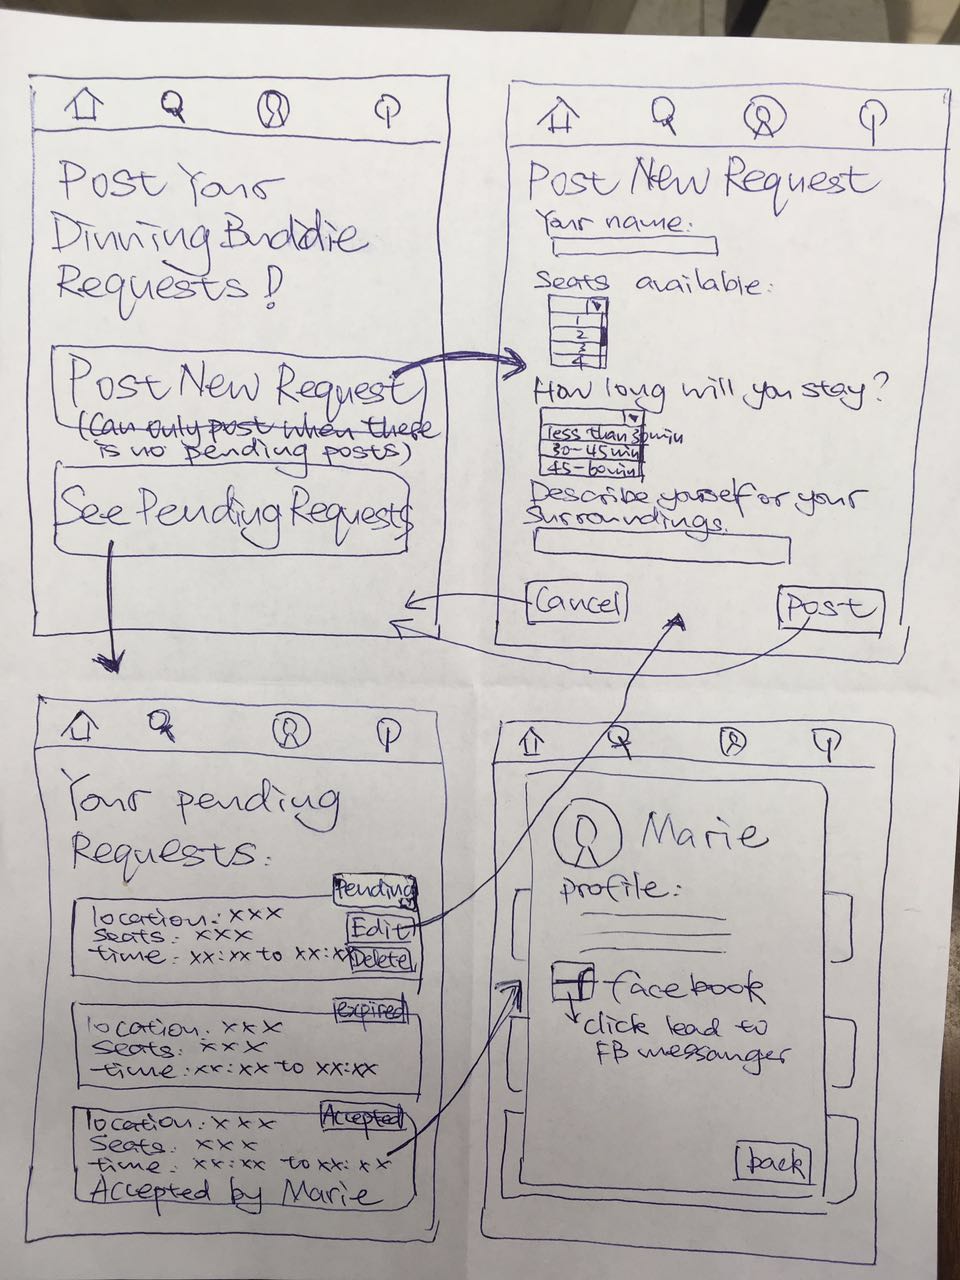 Post Your
Dinning Buddie
Requests!
Post New Request
(Can only post when there
is no pending posts)
See Pending Requests
Post New Request
Your name:
Seats available:
1
2
3
4
How long will you stay?
less than 30min
30-45min
45-60min
Describe youself or your
Surroundings.
Cancel
Post
Your pending
Requests:
Pending
location: xxx
Edit
Seats: xxx
time: xx:xx to xx:xx
Delete
expired
location: xxx
Seats: xxx
time: xx:xx to xx:xx
Accepted
location: xxx
Seats: xxx
time: xx:xx to xx:xx
Accepted by Marie
Marie
profile:
f facebook
click lead to
FB messanger
back